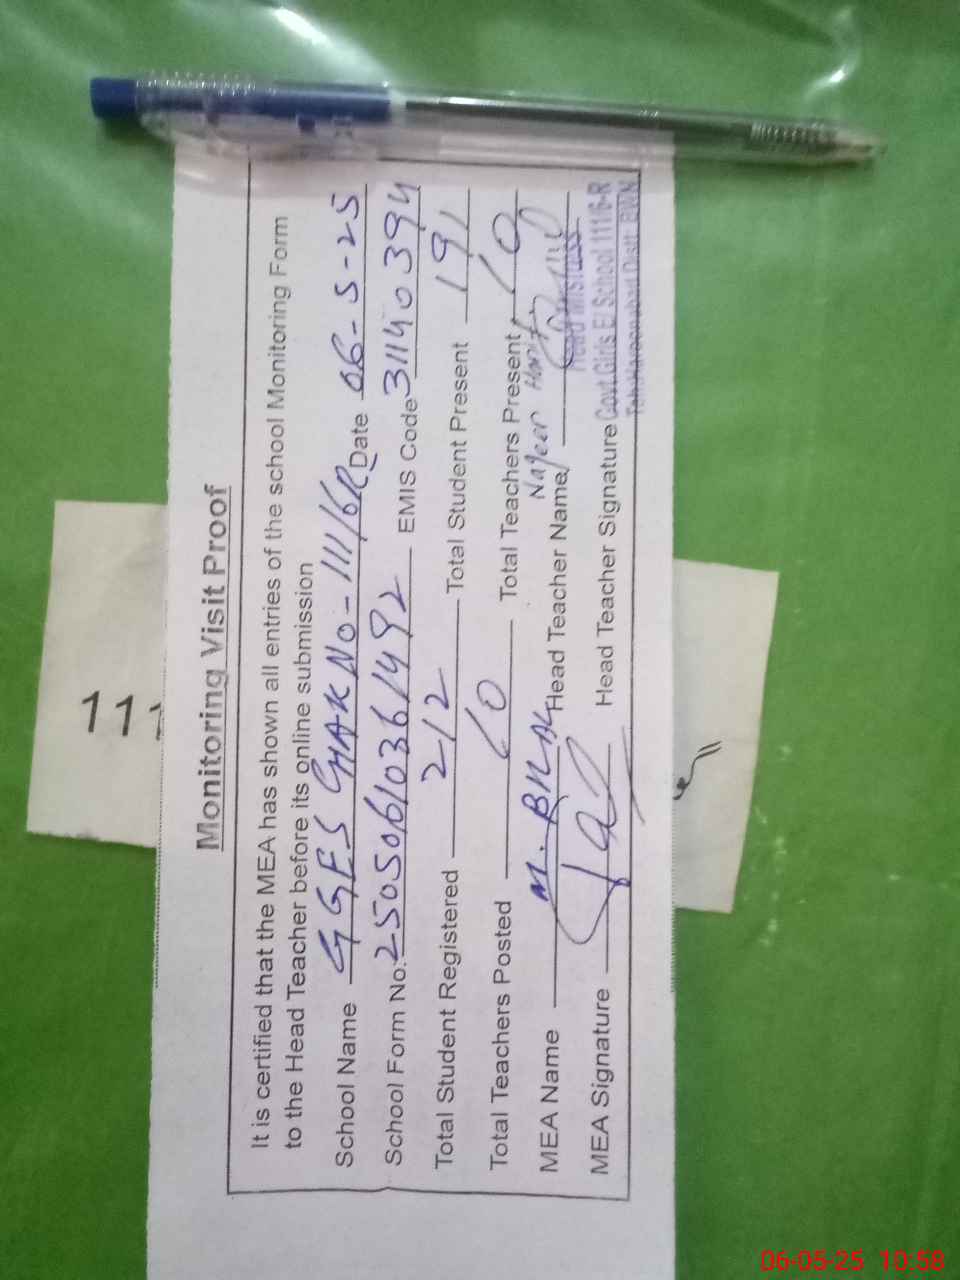 Monitoring Visit Proof
It is certified that the MEA has shown all entries of the school Monitoring Form
to the Head Teacher before its online submission
School Name GGES CHAK NO-111/6R Date 06-5-25
School Form No: 25050610361492 EMIS Code 31140394
Total Student Registered 212 Total Student Present 191
Total Teachers Posted 10 Total Teachers Present 10
MEA Name M. BILAL Head Teacher Name
MEA Signature Head Teacher Signature
Head Mistress
Govt.Girls El School 111/6-R
Teh: Haroonabad Distt. BWN
11
06-05-25 10:58